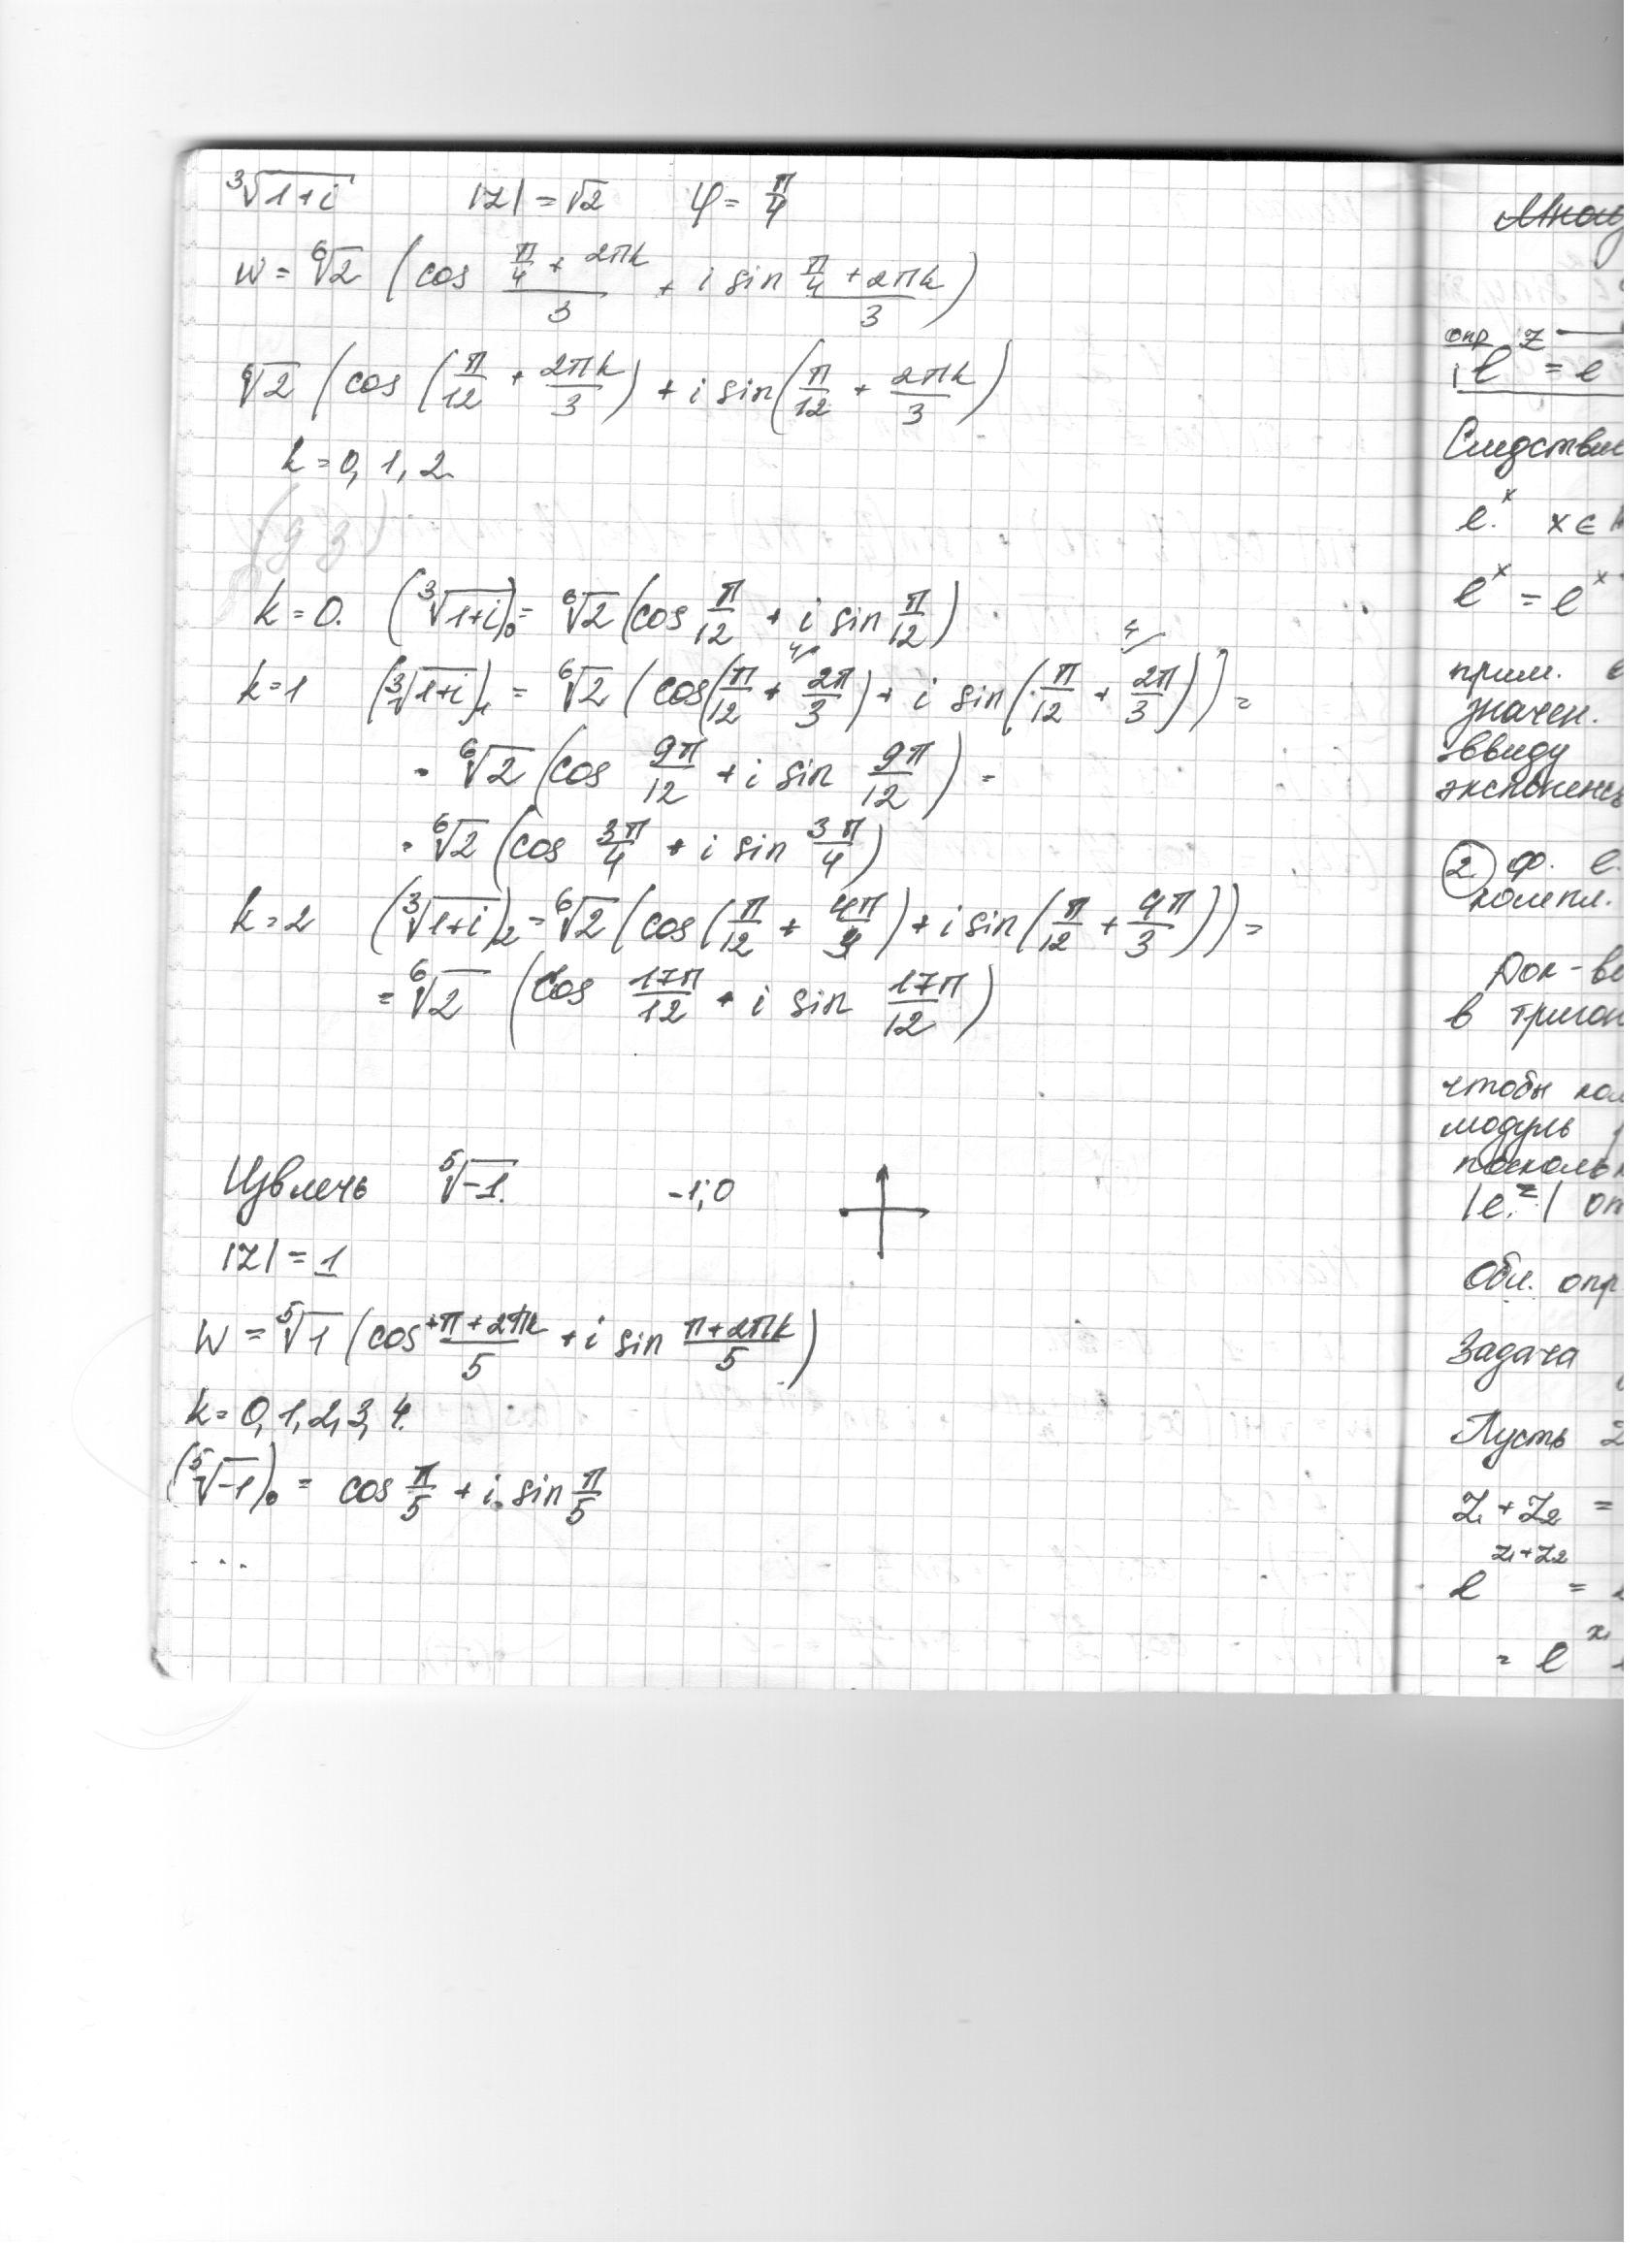 ∛(1+i)   |z| = √2   φ = π/4
w = ⁶√2 (cos (π/4 + 2πk)/3 + i sin (π/4 + 2πk)/3)
⁶√2 (cos (π/12 + 2πk/3) + i sin(π/12 + 2πk/3)
k = 0, 1, 2.
k = 0. (∛(1+i))₀ = ⁶√2 (cos π/12 + i sin π/12)
k = 1 (∛(1+i))₁ = ⁶√2 (cos(π/12 + 2π/3) + i sin(π/12 + 2π/3)) =
= ⁶√2 (cos 9π/12 + i sin 9π/12) =
= ⁶√2 (cos 3π/4 + i sin 3π/4)
k = 2 (∛(1+i))₂ = ⁶√2 (cos(π/12 + 4π/3) + i sin(π/12 + 4π/3)) =
= ⁶√2 (cos 17π/12 + i sin 17π/12)
Извлечь ⁵√-1. -1;0
|z| = 1
w = ⁵√1 (cos (+π+2πk)/5 + i sin (π+2πk)/5)
k = 0, 1, 2, 3, 4.
(⁵√-1)₀ = cos π/5 + i sin π/5
...
опр z
e = e
e^x x ∈
e^x = e^x
прим.
значен.
ввиду
② ф. e.
компл.
Док-во
в тригон
чтобы
модуль
|e^z|
Обл. опр
Задача
Пусть z
z₁ + z₂ =
e^(z₁+z₂) =
= e^x₁